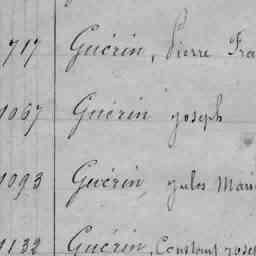 717 Guérin, Pierre Fra
1067 Guérin Joseph
1093 Guérin, Jules Mari
1132 Guérin, Constant Josep